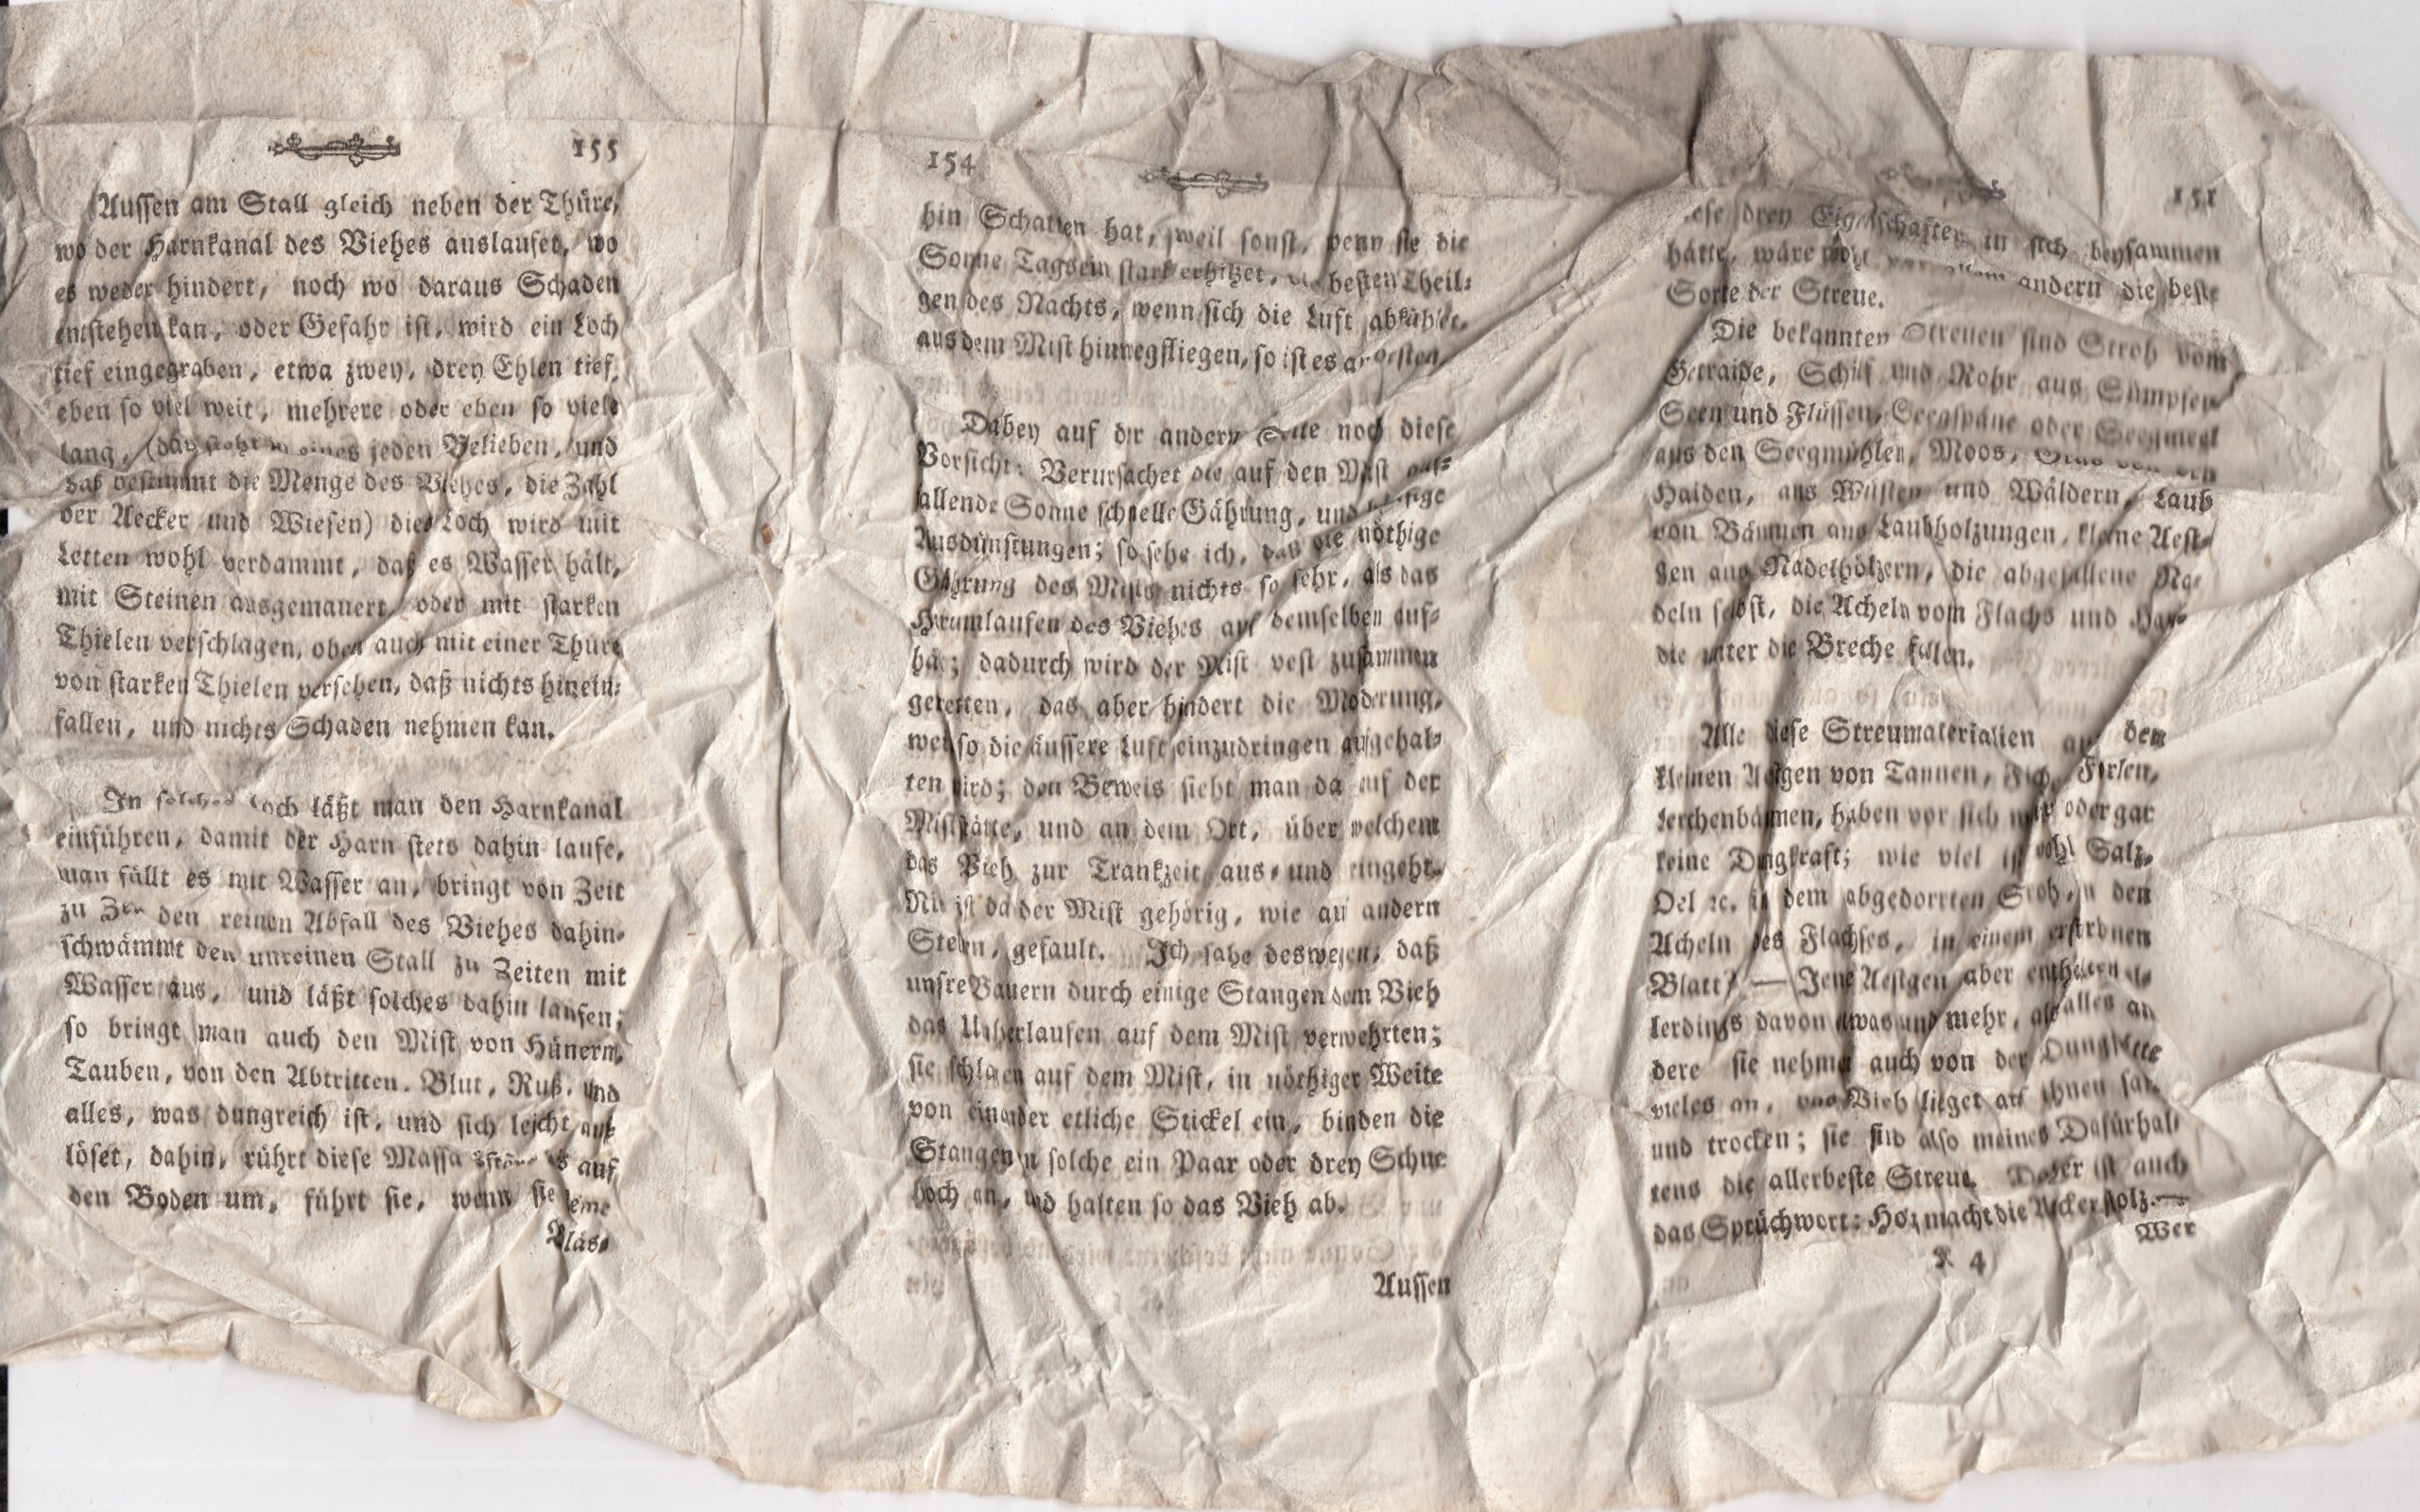 155
Aussen am Stall gleich neben der Thüre,
wo der Harnkanal des Viehes auslaufet, wo
es weder hindert, noch wo daraus Schaden
entstehen kan, oder Gefahr ist, wird ein Loch
tief eingegraben, etwa zwey, drey Ehlen tief,
eben so viel weit, mehrere oder eben so viele
lang, (das steht in eines jeden Belieben, und
das bestimmt die Menge des Viehes, die Zahl
der Aecker und Wiesen) dies Loch wird mit
Letten wohl verdammt, daß es Wasser hält,
mit Steinen ausgemauert, oder mit starken
Thielen verschlagen, oben auch mit einer Thüre
von starken Thielen versehen, daß nichts hinein-
fallen, und nichts Schaden nehmen kan.
In solches Loch läßt man den Harnkanal
einführen, damit der Harn stets dahin laufe,
man füllt es mit Wasser an, bringt von Zeit
zu Zeit den reinen Abfall des Viehes dahin,
schwämmt den unreinen Stall zu Zeiten mit
Wasser aus, und läßt solches dahin laufen;
so bringt man auch den Mist von Hünern,
Tauben, von den Abtritten. Blut, Ruß, und
alles, was dungreich ist, und sich leicht auf-
löset, dahin, rührt diese Massa öfters auf
den Boden um, führt sie, wenn sie eine
Bläs-
154
hin Schatten hat, weil sonst, wenn sie die
Sonne Tags ein stark erhitzet, die besten Theil-
gen des Nachts, wenn sich die Luft abkühlet,
aus dem Mist hinwegfliegen, so ist es am besten.
Dabey auf der andern Seite noch diese
Vorsicht: Verursachet die auf den Mist auf-
fallende Sonne schnelle Gährung, und
Ausdünstungen; so sehe ich, daß die nöthige
Gährung des Mists nichts so sehr, als das
Herumlaufen des Viehes auf demselben auf-
hält; dadurch wird der Mist vest zusammen
getretten, das aber hindert die Moderung,
weil so die äussere Luft einzudringen aufgehal-
ten wird; den Beweis sieht man da auf der
Miststätte, und an dem Ort, über welchem
das Vieh zur Trankzeit aus- und eingeht.
Nie ist da der Mist gehörig, wie an andern
Stellen, gefault. Ich sahe deswegen, daß
unsre Bauern durch einige Stangen dem Vieh
das Ueberlaufen auf dem Mist verwehrten;
sie schlagen auf dem Mist, in nöthiger Weite
von einander etliche Stickel ein, binden die
Stangen an solche ein Paar oder drey Schue
hoch an, und halten so das Vieh ab.
Aussen
151
diese drey Eigenschaften in sich beysammen
hätte, wäre wohl vor allem andern die beste
Sorte der Streue.
Die bekannten Streuen sind Stroh vom
Getraide, Schilf und Rohr aus Sümpfen,
Seen und Flüssen, Seegspäne oder Seegmeel
aus den Seegmühlen, Moos, Gras von den
Haiden, aus Wüsten und Wäldern, Laub
von Bäumen aus Laubholzungen, kleine Aest-
gen aus Nadelhölzern, die abgefallene Na-
deln selbst, die Acheln vom Flachs und
die unter die Breche fallen.
Alle diese Streumaterialien den
kleinen Aestgen von Tannen, Ficht, Forlen,
Lerchenbäumen, haben vor sich oder gar
keine Dungkraft; wie viel ist wohl Salz,
Oel ꝛc. in dem abgedorrten Stroh, in den
Acheln des Flachses, in einem erstorbnen
Blatt? — Jene Aestgen aber enthalten al-
lerdings davon etwas und mehr, als alles an-
dere sie nehmen auch von der Dungstätte
vieles an, das Vieh lieget auf ihnen
und trocken; sie sind also meines Dafürhal-
tens die allerbeste Streue. Daher ist auch
das Sprüchwort: Holz macht die Aecker stolz. —
K 4
Wer